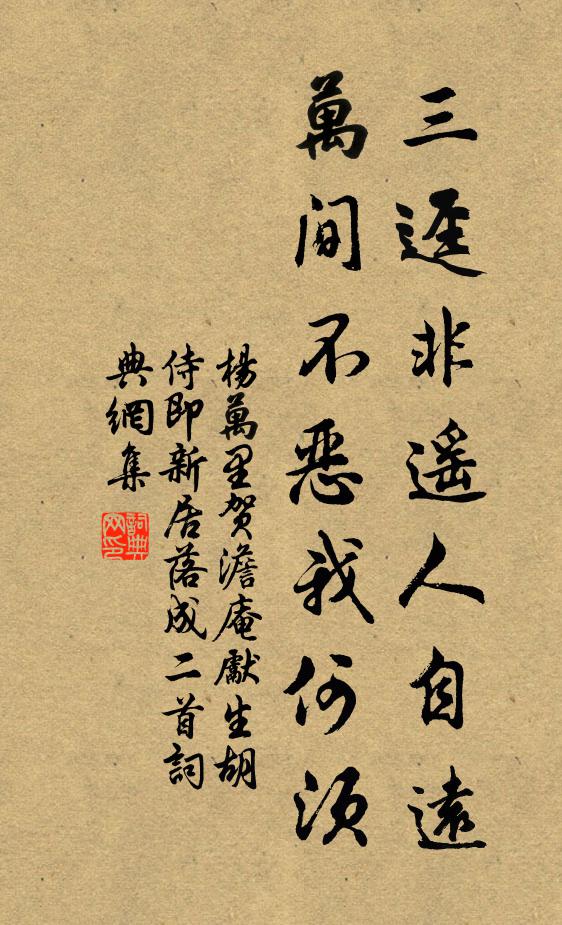 三逕非遙人自遠
萬間不惡我何須
楊萬里賀澹庵獻生胡
侍即新居落成二首詞
典網集
詞典网印